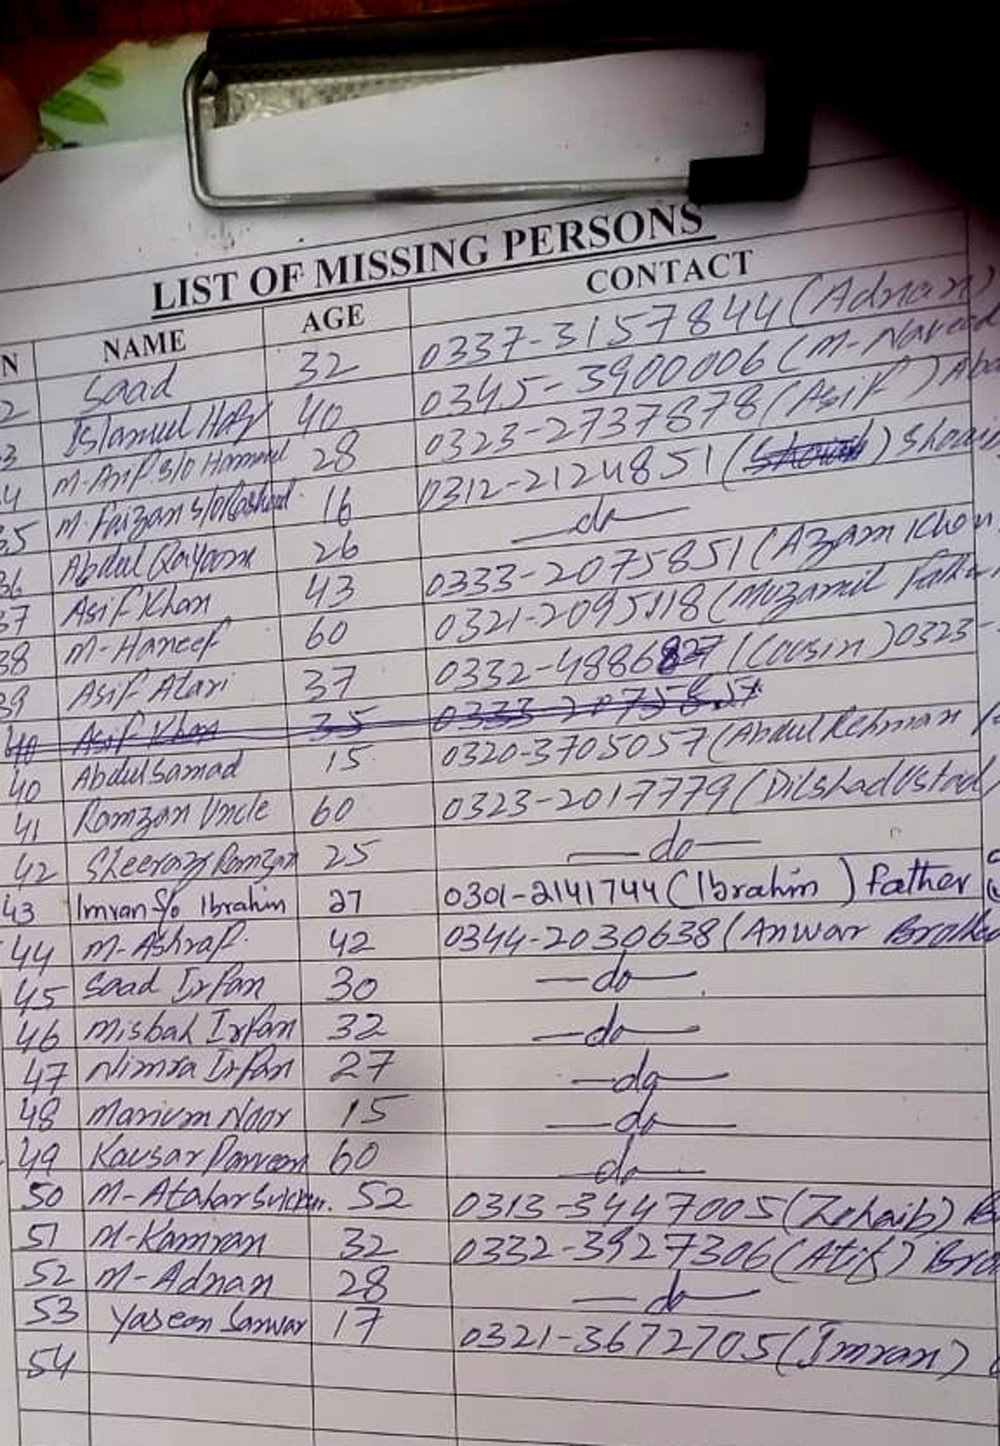 LIST OF MISSING PERSONS
N NAME AGE CONTACT
2 Saad 32 0337-3157844 (Adnan)
3 40 0345-3900006 (M-Naveed
4 M-Arif S/o 28 0323-2737878 (Asif)
35 M-Faizan S/o Rashed 16 0312-2124851 ( ) Shoaib
36 Abdul Qayoom 26 —do—
37 Asif Khan 43 0333-2075851 (Azam Khan
38 M-Haneef 60 (Muzamil Father
39 Asif Atari 37 0332-4886827 (Cousin) 0323-
40 Asif Khan 35
40 Abdul Samad 15 0320-3705057 (Abdul Rehman
41 Ramzan Uncle 60 0323-2017779 (Dilshad Ustad)
42 Sheeraz Ramzan 25 —do—
43 Imran S/o Ibrahim 27 0301-2141744 (Ibrahim) father
44 M-Ashraf. 42 0344-2030638 (Anwar Brother
45 Saad Irfan 30 —do—
46 Misbah Irfan 32 —do—
47 Nimra Irfan 27 —do—
48 Marium Noor 15 —do—
49 Kausar Parveen 60 —do—
50 M- 52 0313-3447005 (Zohaib)
51 M-Kamran 32 0332-3927306 (Atif) Bro
52 M-Adnan 28 —do—
53 Yaseen Sarwar 17 0321-3672705 (Imran)
54